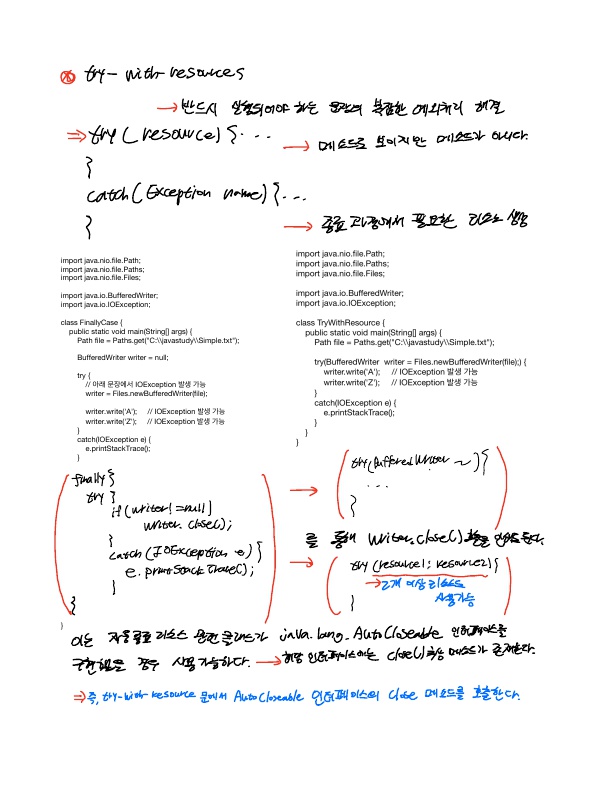 try-with-resources
→ 반드시 실행되어야 하는 문장의 복잡한 예외처리 해결
⇒ try(resource){...
→ 메소드로 보이지만 메소드가 아니다.
}
catch(Exception name){...
}
→ 종료 과정에서 필요한 리소스 생성
import java.nio.file.Path;
import java.nio.file.Paths;
import java.nio.file.Files;
import java.io.BufferedWriter;
import java.io.IOException;
class FinallyCase {
public static void main(String[] args) {
Path file = Paths.get("C:\\javastudy\\Simple.txt");
BufferedWriter writer = null;
try {
// 아래 문장에서 IOException 발생 가능
writer = Files.newBufferedWriter(file);
writer.write('A'); // IOException 발생 가능
writer.write('Z'); // IOException 발생 가능
}
catch(IOException e) {
e.printStackTrace();
}
finally {
try {
if(writer != null)
writer.close();
}
catch(IOException e){
e.printStackTrace();
}
}
}
import java.nio.file.Path;
import java.nio.file.Paths;
import java.nio.file.Files;
import java.io.BufferedWriter;
import java.io.IOException;
class TryWithResource {
public static void main(String[] args) {
Path file = Paths.get("C:\\javastudy\\Simple.txt");
try(BufferedWriter writer = Files.newBufferedWriter(file);) {
writer.write('A'); // IOException 발생 가능
writer.write('Z'); // IOException 발생 가능
}
catch(IOException e) {
e.printStackTrace();
}
}
}
→ try(BufferedWriter ~){
...
}
를 통해 writer.close() 한다.
→ try(resource1; resource2){
→ 2개 이상 리소스
사용가능
}
이는 자동종료 리소스 관련 클래스가 java.lang.AutoCloseable 인터페이스를
구현했을 경우 사용가능하다. → 해당 인터페이스에는 close() 메소드가 존재한다.
⇒ 즉, try-with-resource 문에서 AutoCloseable 인터페이스의 close 메소드를 호출한다.